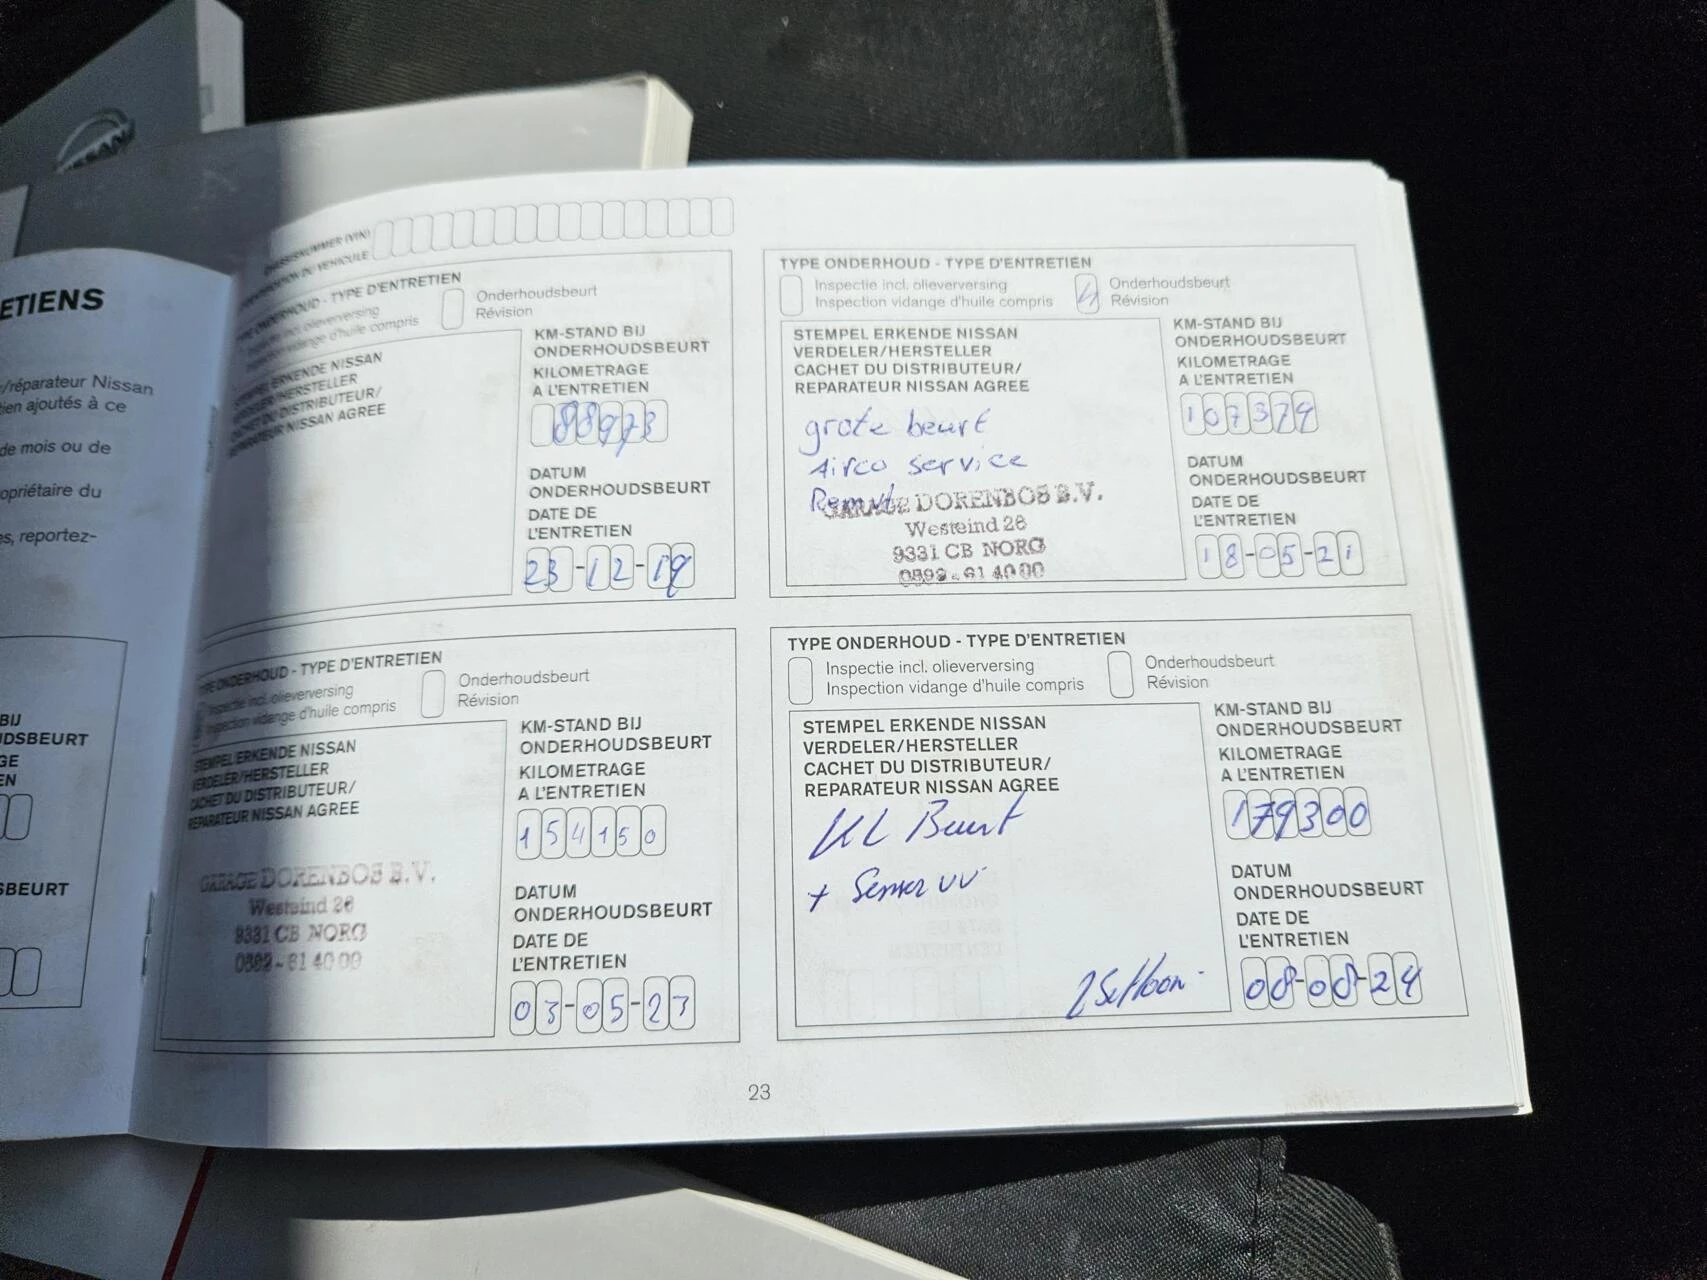 NISSAN
ETIENS
/réparateur Nissan
tien ajoutés à ce
de mois ou de
opriétaire du
es, reportez-
BIJ
DSBEURT
GE
EN
SBEURT
CHASSISNUMMER (VIN)
DU VEHICULE
TYPE ONDERHOUD - TYPE D'ENTRETIEN
Inspectie incl. olieverversing
Inspection vidange d'huile compris
Onderhoudsbeurt
Révision
STEMPEL ERKENDE NISSAN
VERDELER/HERSTELLER
CACHET DU DISTRIBUTEUR/
REPARATEUR NISSAN AGREE
KM-STAND BIJ
ONDERHOUDSBEURT
KILOMETRAGE
A L'ENTRETIEN
88973
DATUM
ONDERHOUDSBEURT
DATE DE
L'ENTRETIEN
23-12-19
TYPE ONDERHOUD - TYPE D'ENTRETIEN
Inspectie incl. olieverversing
Inspection vidange d'huile compris
Onderhoudsbeurt
Révision
STEMPEL ERKENDE NISSAN
VERDELER/HERSTELLER
CACHET DU DISTRIBUTEUR/
REPARATEUR NISSAN AGREE
grote beurt
Airco service
GARAGE DORENBOS B.V.
Westeind 26
9331 CB NORG
0592-61 40 00
KM-STAND BIJ
ONDERHOUDSBEURT
KILOMETRAGE
A L'ENTRETIEN
107379
DATUM
ONDERHOUDSBEURT
DATE DE
L'ENTRETIEN
18-05-21
TYPE ONDERHOUD - TYPE D'ENTRETIEN
Inspectie incl. olieverversing
Inspection vidange d'huile compris
Onderhoudsbeurt
Révision
STEMPEL ERKENDE NISSAN
VERDELER/HERSTELLER
CACHET DU DISTRIBUTEUR/
REPARATEUR NISSAN AGREE
GARAGE DORENBOS B.V.
Westeind 26
9331 CB NORG
0592-61 40 00
KM-STAND BIJ
ONDERHOUDSBEURT
KILOMETRAGE
A L'ENTRETIEN
154150
DATUM
ONDERHOUDSBEURT
DATE DE
L'ENTRETIEN
03-05-23
TYPE ONDERHOUD - TYPE D'ENTRETIEN
Inspectie incl. olieverversing
Inspection vidange d'huile compris
Onderhoudsbeurt
Révision
STEMPEL ERKENDE NISSAN
VERDELER/HERSTELLER
CACHET DU DISTRIBUTEUR/
REPARATEUR NISSAN AGREE
KL Beurt
+
KM-STAND BIJ
ONDERHOUDSBEURT
KILOMETRAGE
A L'ENTRETIEN
179300
DATUM
ONDERHOUDSBEURT
DATE DE
L'ENTRETIEN
08-08-24
23